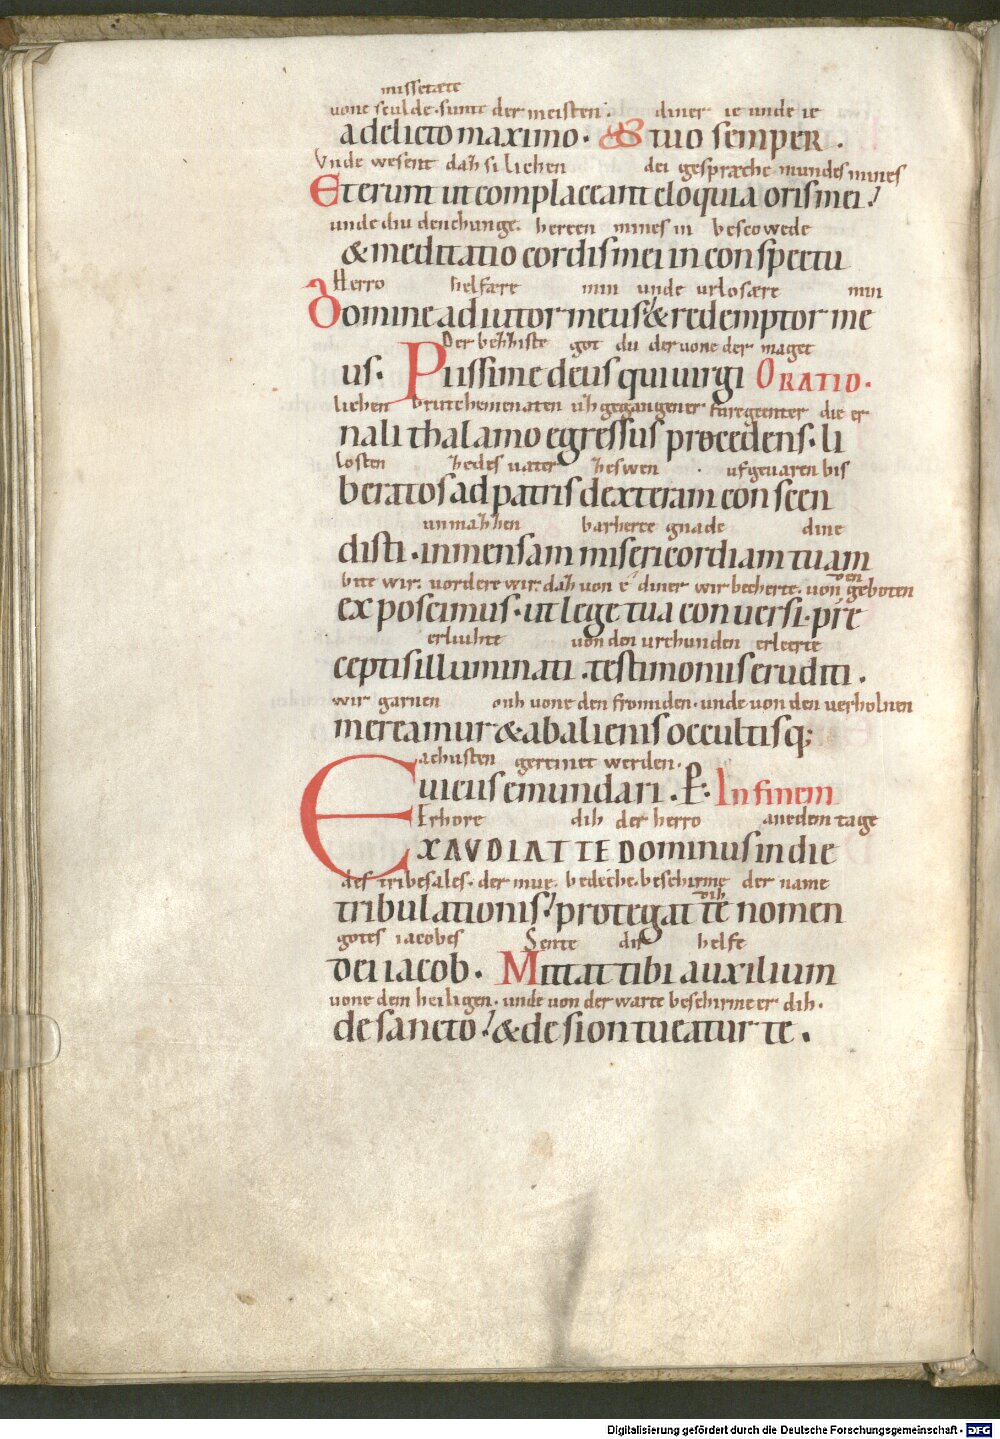 missetæte
vone sculde · sunte der meisten · diner ie unde ie
a delicto maximo · tuo semper ·
Vnde wesent dah si lichen dei gespræche mundes mines
Et erunt ut complaceant eloquia oris mei
unde diu denchunge · hercen mines in bescowede
& meditatio cordis mei in conspectu
Herro helfære min unde urlosære min
Domine adiutor meus & redemptor me
Der behhiste got du der vone der maget
us · Piissime deus qui uirgi ORATIO ·
lichen brutchemenaten uh gegangener furegenter die er
nali thalamo egressus procedens · li
losten hedes uater heswen ufgeuaren bis
beratos ad patris dexteram conscen
unmahhen barherce gnade dine
disti · inmensam misericordiam tuam
bite wir · vordere wir · dah von e diner wir becherte · von den geboten
exposcimus · ut lege tua conuersi · pre
erluhte von den urchunden erlerte
ceptis illuminati · testimoniis eruditi ·
wir garnen ouh vone den fromiden · unde von den verholnen
mereamur & ab alienis occultisq;
achusten gereinet werden ·
euicus emundari · P · In finem
Erhore dih der herro anedem tage
EXAVDIAT TE Dominus in die
des tribesales · der mure · bedeche · beschirme dih der name
tribulationis protegat te nomen
gotes iacobes Sente dir helfe
dei iacob · Mittat tibi auxilium
vone dem heiligen · unde von der warte beschirme er dih ·
de sancto & de sion tueatur te ·
Digitalisierung gefördert durch die Deutsche Forschungsgemeinschaft - DFG